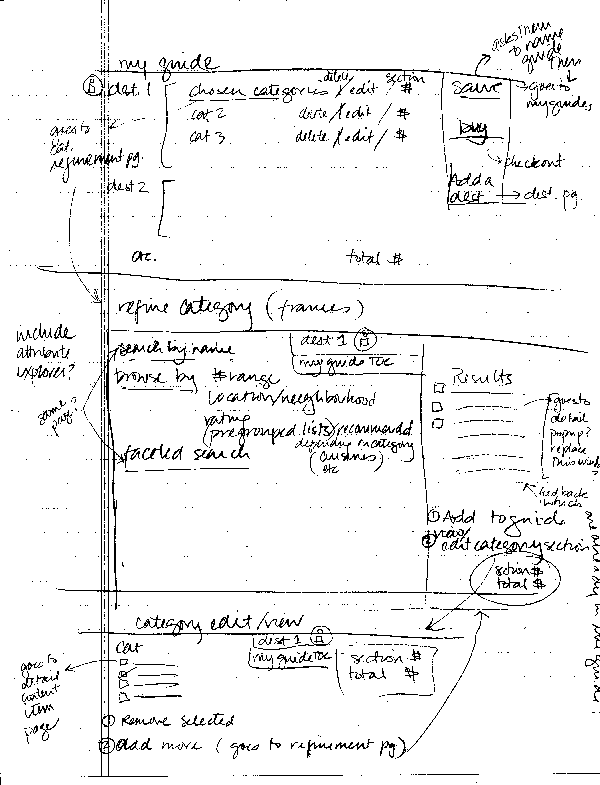 asks them
to name
guide
then
goes to
myguides
my guide
dest 1
chosen categories delete / edit / section #
cat 2 delete / edit / #
cat 3 delete / edit / #
goes to
cat.
refinement pg.
save
buy
checkout
Add a
dest → dest. pg
dest 2
etc.
total #
refine category (frames)
include
attribute
explorer?
same
page?
search by name
dest 1
my guide TOC
browse by # range
location/neighbourhood
rating
(pregrouped lists)/recommended
depending on category
(cuisines)
etc
faceted search
Results
goes to
detail
popup?
replace
this window
feedback
which
are already in my guide?
① Add to guide
② edit category section
section #
total #
category edit/view
dest 1
my guide TOC
section #
total #
cat
goes to
detail
content
item
page
① Remove selected
② add more (goes to refinement pg)